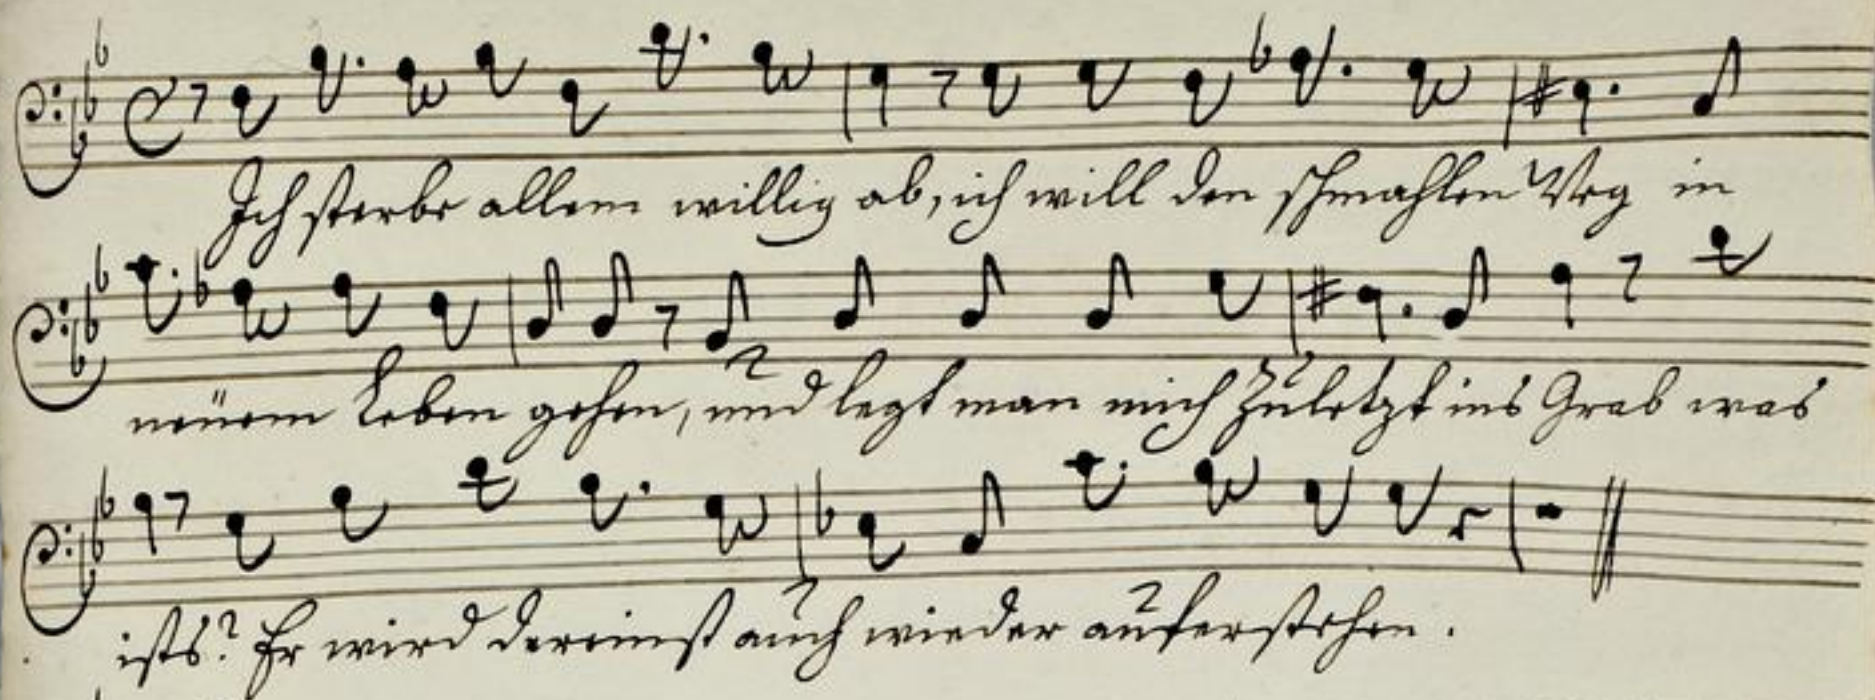 Ich sterbe allem willig ab, ich will den schmahlen Weg in
neüem Leben gehen, und legt man mich zuletzt ins Grab was
ists? Er wird dereinst auch wieder auferstehen.